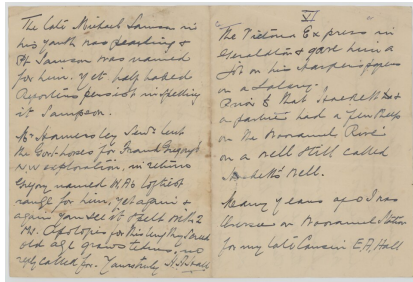 The late Michael Samson in
his youth was pearling &
Pt Samson was named
for him. Yet half baked
Reporters persist in spelling
it Sampson.
Mr Hamersley Senr lent
the Govt horses for Frank Gregory's
N.W. exploration, in return
Gregory named W.A's loftiest
range for him, yet again &
again you see it spelt with 2
Ms. Apologies for this lengthy
old age grows
called for. Yours truly H. A. Hall
VI
"The Victoria Express" in
Geraldton & gave him a
job on his
on a Salary.
Prior to that Hackett &
a partner had a few sheep
on the Wooramel River
on a well still called
Hackett's Well.
Many years ago I was
Overseer on Wooramel Station
for my late Cousin E. A. Hall